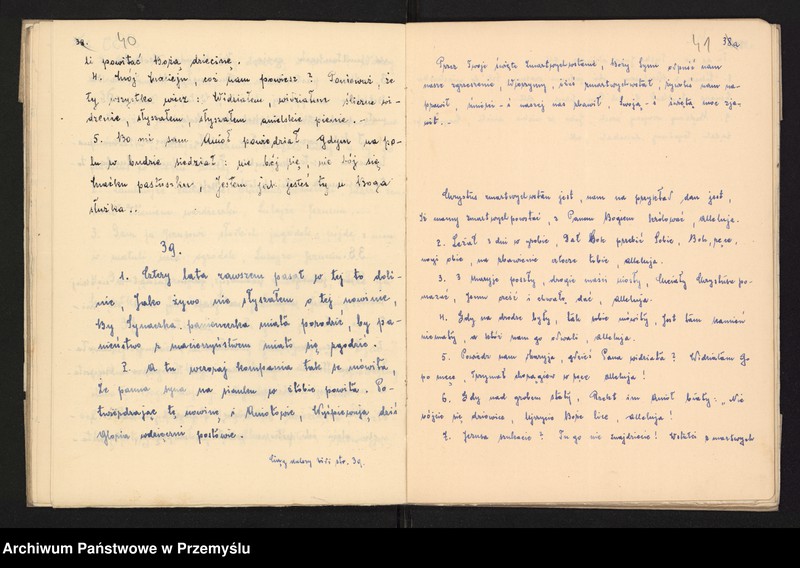 38. 40
li powitać Bożą dziecinę.
4. Mój Macieju, cóż nam powiesz? Ponieważ, że
ty wszystko wiesz: Widziałem, widziałem śliczne wi-
dzenie, słyszałem, słyszałem anielskie pienie.-
5. Bo mi sam Anioł powiedział, Gdym na po-
lu w budzie siedział: nie bój się, nie bój się
Maćku pastuszku, Jestem jak jesteś ty u Boga
służka..
39.
1. Cztery lata zawszem pasał w tej to doli-
nie, Jako żywo nie słyszałem o tej nowinie,
By Synaczka panieneczka miała porodzić, by pa-
nieństwo z macierzyństwem miało się zgodzić.
2. A tu wczoraj kompania tak se mówiła,
Że panna syna na sianku w żłobie powiła. Po-
twierdzając tę nowinę i Aniołowie, Wyśpiewują dziś
Gloria wdzięczni posłowie.
Ciąg dalszy str. 39.
41 38a
Przez Twoje święte zmartwychwstanie, Boży Synu odpuść nam
nasze zgrzeszenie, Wierzymy, iżeś zmartwychwstał, żywot nam na-
prawił, śmierci-ś naszej nas zbawił, Swoją-ś świętą moc zja-
wił.-
Chrystus zmartwychwstan jest, nam na przykład dan jest,
Iż mamy zmartwychpowstać, z Panem Bogiem królować, alleluja.
2. Leżał 3 dni w grobie, Dał bok przebić sobie, Bok, ręce,
nogi obie, na zbawienie człecze tobie, alleluja.
3. 3 Maryje poszły, drogie maści niosły, Chciały Chrystusa po-
mazać, Jemu cześć i chwałę dać, alleluja.
4. Gdy na drodze były, tak sobie mówiły, Jest tam kamień
niemały, a któż nam go odwali, alleluja.
5. Powiedz nam Maryja, gdzieś Pana widziała? Widziałam Go
po męce, Trzymał chorągiew w ręce, alleluja!
6. Gdy nad grobem stały, Rzekł im Anioł biały: "Nie
bójcie się dziewice, Ujrzycie Boże lice, alleluja!
7. Jezusa szukacie? Tu go nie znajdziecie! Wstał-ci z martwych
Archiwum Państwowe w Przemyślu